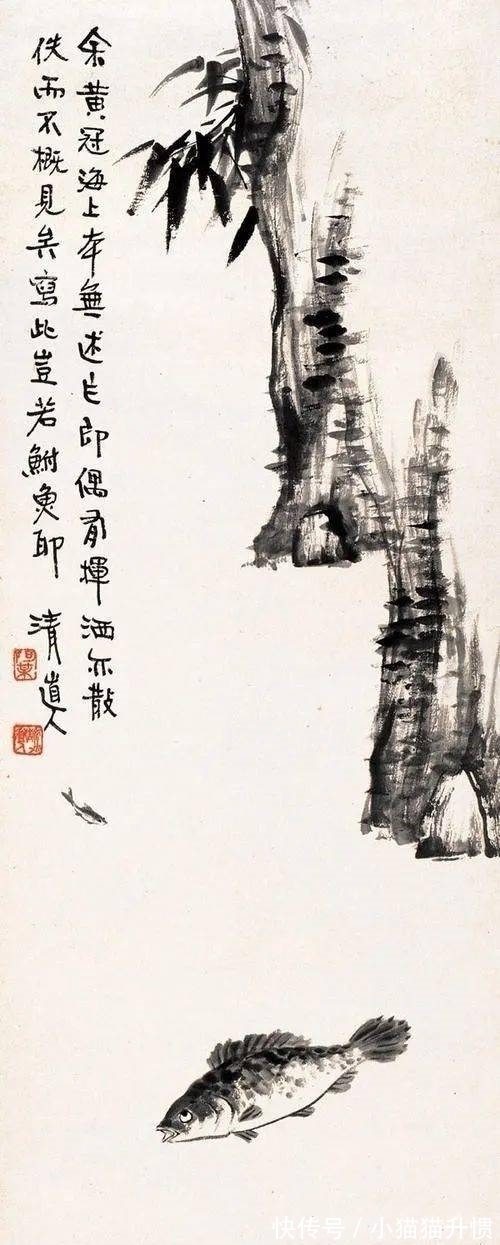 余黄冠海上本無述乍即偶有揮洒亦散
佚而不概見矣寫此豈若鮒魚耶
清道人
快传号/小猫猫升惯